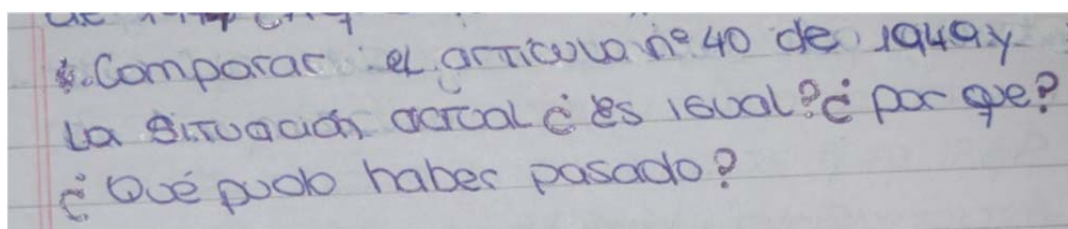 Comparar el articulo nº 40 de 1949 y
La situación actual ¿ es igual? ¿ por que?
¿ Qué pudo haber pasado?